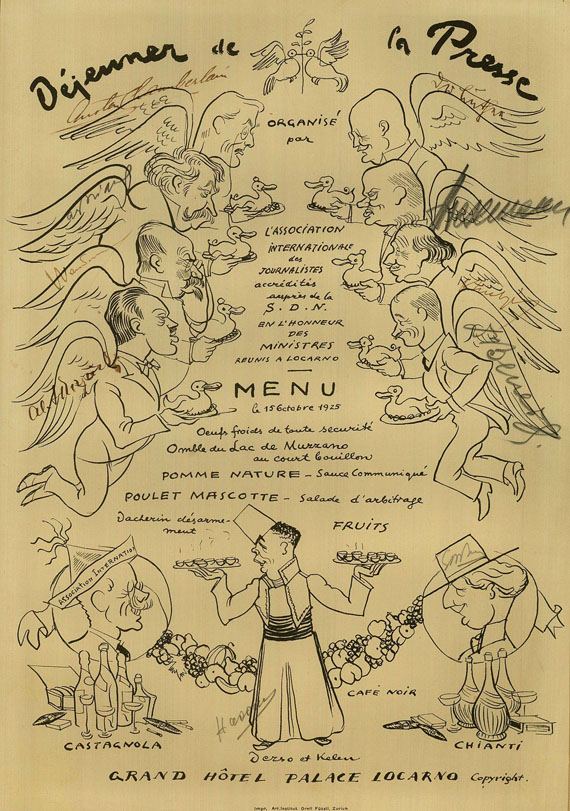 Déjeuner de la Presse
ORGANISÉ
par
L'ASSOCIATION
INTERNATIONALE
des
JOURNALISTES
accrédités
auprès de la
S. D. N.
EN L'HONNEUR
DES
MINISTRES
REUNIS A LOCARNO
MENU
le 15 Octobre 1925
Oeufs froids de toute securité
Omble du Lac de Muzzano
au court bouillon
POMME NATURE - Sauce Communiqué
POULET MASCOTTE - Salade d'arbitrage
Vacherin désarme-
ment
FRUITS
ASSOCIATION INTERNATION
CAFÉ NOIR
CASTAGNOLA
CHIANTI
Derso et Kelen
GRAND HÔTEL PALACE LOCARNO Copyright.
Impr. Art. Institut Orell Füssli, Zürich